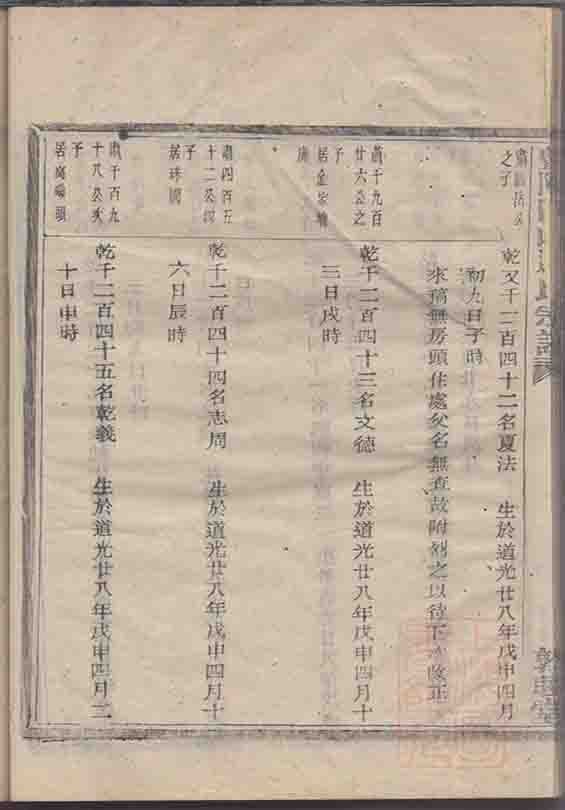 之子
乾又千二百四十二名夏法 生於道光廿八年戊申四月
初九日子時
來稿無房頭住處父名無查故附烈之以待下次改正
肅千九百
廿六公之
子
居金
乾千二百四十三名文德 生於道光廿八年戊申四月十
三日戌時
肅四百五
十二公
子
居珠
乾千二百四十四名志周 生於道光廿八年戊申四月十
六日辰時
肅千百九
十八公
子
居
乾千二百四十五名乾義 生於道光廿八年戊申四月二
十日申時
宗譜